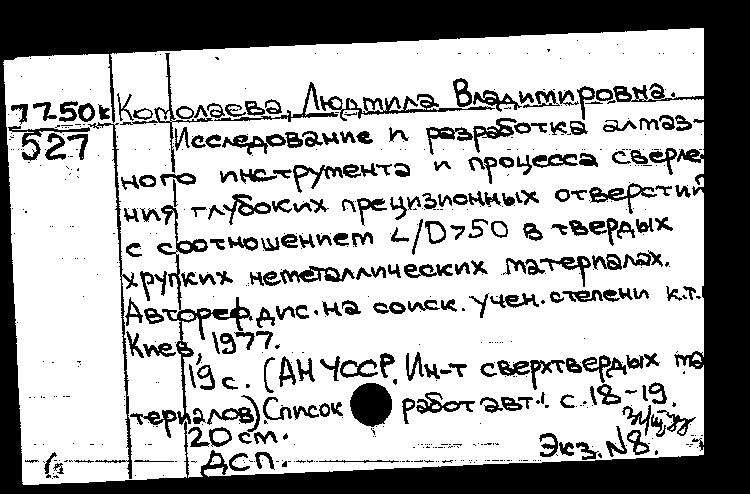 77-50к Котолаева, Людмила Владимировна.
527 Исследование и разработка алмаз-
ного инструмента и процесса сверле-
ния глубоких прецизионных отверстий
с соотношением L/D>50 в твердых
хрупких неметаллических материалах.
Автореф. дис. на соиск. учен. степени к.т.
Киев, 1977.
19 с. (АН УССР. Ин-т сверхтвердых ма
териалов). Список работ авт.: с. 18-19.
20 см.
ДСП. Экз. N8.